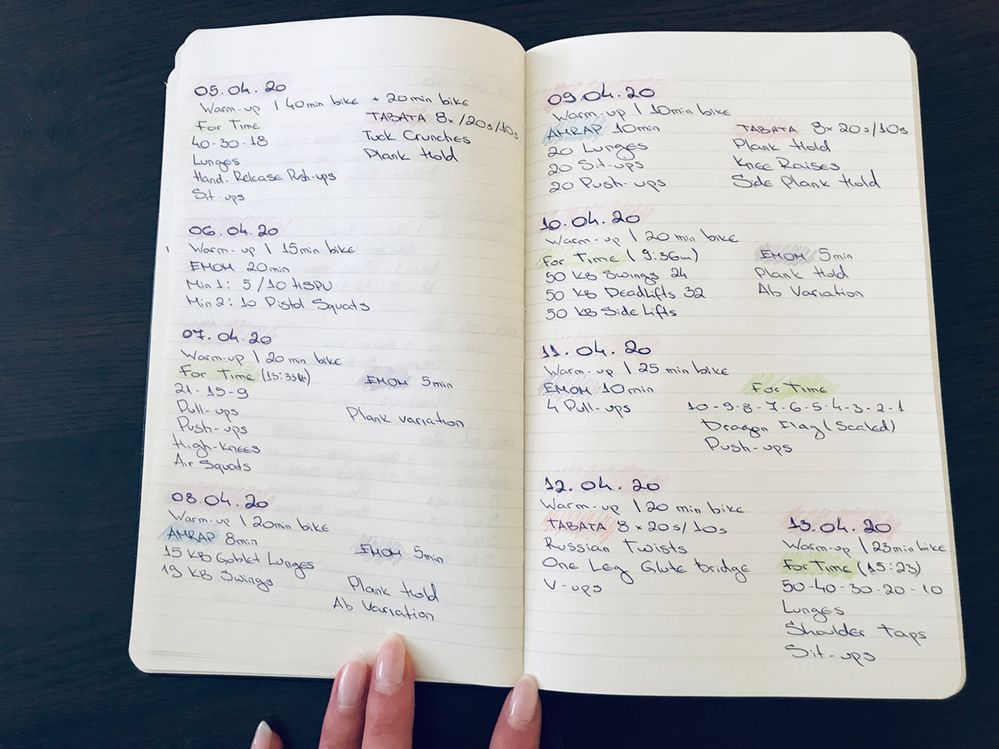 05.04.20
Warm-up | 40min bike + 20min bike
For Time
40-30-18
Lunges
Hand-Release Push-ups
Sit-ups
TABATA 8x/20s/10s
Tuck Crunches
Plank Hold
06.04.20
Warm-up | 15min bike
EMOM 20min
Min 1: 5/10 HSPU
Min 2: 10 Pistol Squats
07.04.20
Warm-up | 20min bike
For Time
21-15-9
Pull-ups
Push-ups
High-Knees
Air Squats
EMOM 5min
Plank variation
08.04.20
Warm-up | 20min bike
AMRAP 8min
15 KB Goblet Lunges
15 KB Swings
EMOM 5min
Plank Hold
Ab Variation
09.04.20
Warm-up | 10min bike
AMRAP 10min
20 Lunges
20 Sit-ups
20 Push-ups
TABATA 8x20s/10s
Plank Hold
Knee Raises
Side Plank Hold
10.04.20
Warm-up | 20min bike
For Time (9:36m)
50 KB Swings 24
50 KB Deadlifts 32
50 KB Side Lifts
EMOM 5min
Plank Hold
Ab Variation
11.04.20
Warm-up | 25min bike
EMOM 10min
4 Pull-ups
For Time
10-9-8-7-6-5-4-3-2-1
Dragon Flag (Scaled)
Push-ups
12.04.20
Warm-up | 20min bike
TABATA 8x20s/10s
Russian Twists
One Leg Glute Bridge
V-ups
13.04.20
Warm-up | 23min bike
For Time (15:23)
50-40-30-20-10
Lunges
Shoulder Taps
Sit-ups